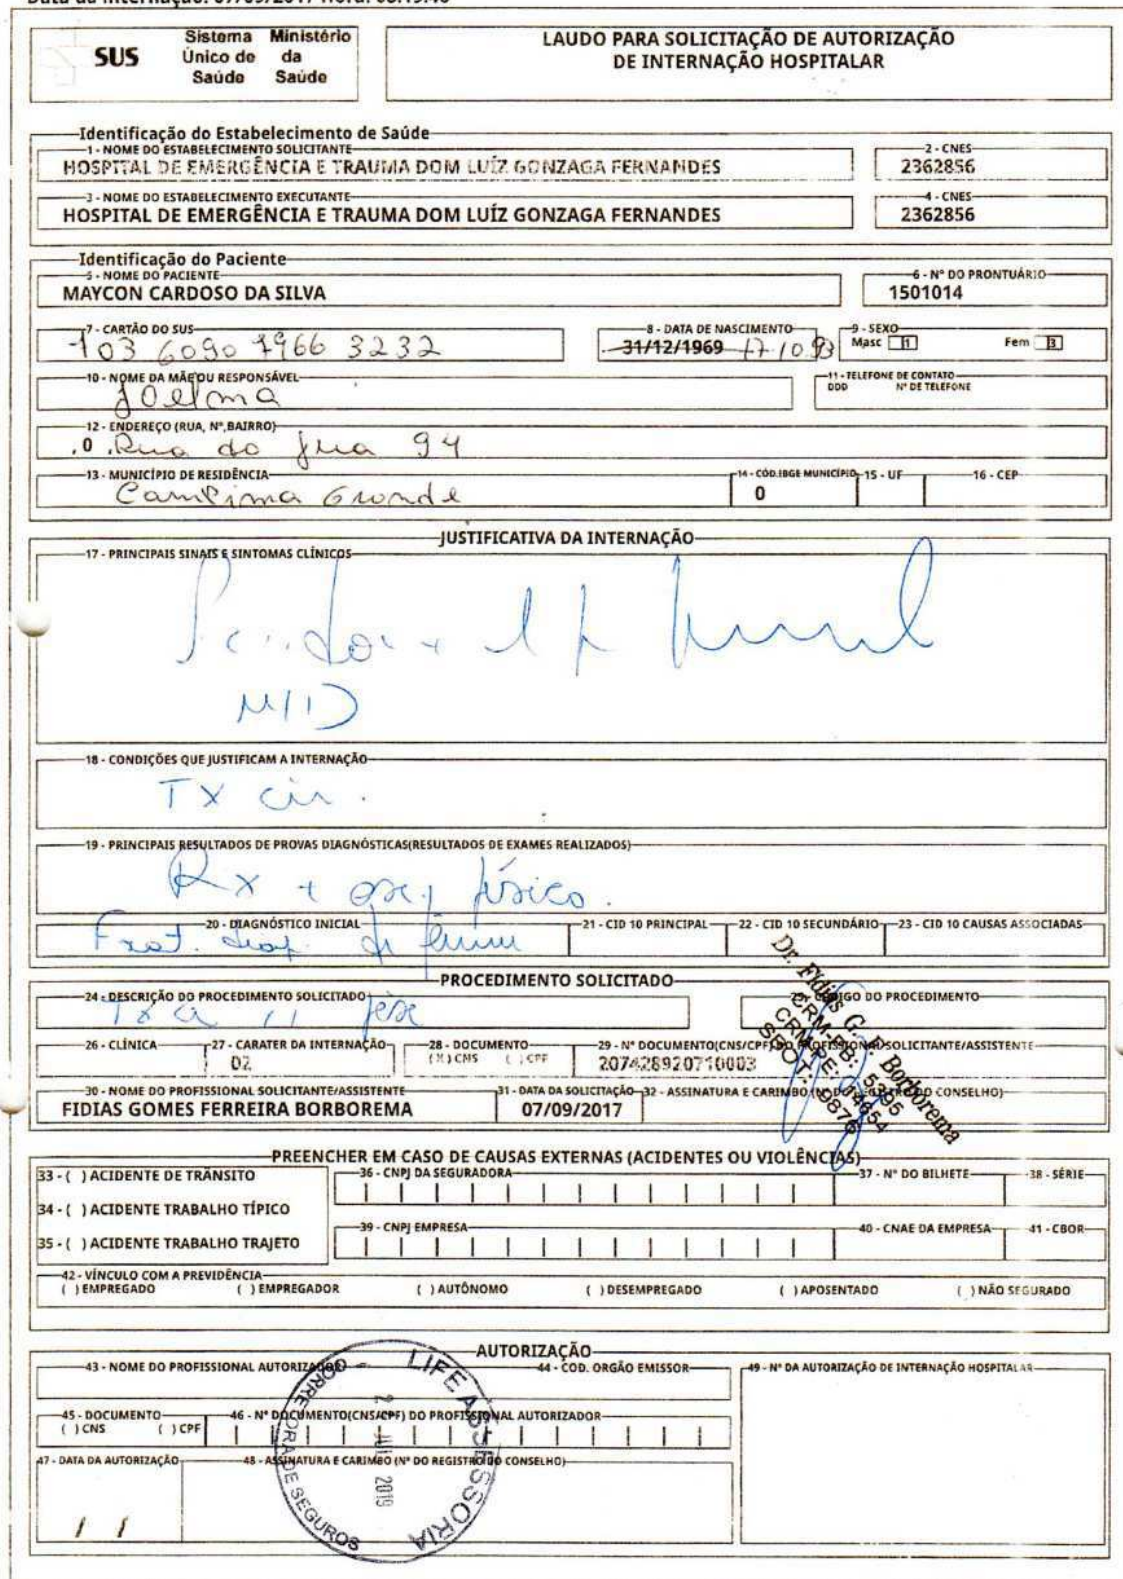 SUS
Sistema Único de Saúde
Ministério da Saúde
LAUDO PARA SOLICITAÇÃO DE AUTORIZAÇÃO
DE INTERNAÇÃO HOSPITALAR
Identificação do Estabelecimento de Saúde
1 - NOME DO ESTABELECIMENTO SOLICITANTE
2 - CNES
HOSPITAL DE EMERGÊNCIA E TRAUMA DOM LUÍZ GONZAGA FERNANDES
2362856
3 - NOME DO ESTABELECIMENTO EXECUTANTE
4 - CNES
HOSPITAL DE EMERGÊNCIA E TRAUMA DOM LUÍZ GONZAGA FERNANDES
2362856
Identificação do Paciente
5 - NOME DO PACIENTE
6 - Nº DO PRONTUÁRIO
MAYCON CARDOSO DA SILVA
1501014
7 - CARTÃO DO SUS
8 - DATA DE NASCIMENTO
9 - SEXO
6090 7966 3232
31/12/1969 17 10 93
Masc 1 Fem 3
10 - NOME DA MÃE OU RESPONSÁVEL
11 - TELEFONE DE CONTATO
DDD Nº DE TELEFONE
Joelma
12 - ENDEREÇO (RUA, Nº,BAIRRO)
,0 Rua do 94
13 - MUNICÍPIO DE RESIDÊNCIA
14 - CÓD.IBGE MUNICÍPIO
15 - UF
16 - CEP
Campina Grande
0
JUSTIFICATIVA DA INTERNAÇÃO
17 - PRINCIPAIS SINAIS E SINTOMAS CLÍNICOS
MID
18 - CONDIÇÕES QUE JUSTIFICAM A INTERNAÇÃO
TX cir.
19 - PRINCIPAIS RESULTADOS DE PROVAS DIAGNÓSTICAS(RESULTADOS DE EXAMES REALIZADOS)
Rx + físico.
20 - DIAGNÓSTICO INICIAL
21 - CID 10 PRINCIPAL
22 - CID 10 SECUNDÁRIO
23 - CID 10 CAUSAS ASSOCIADAS
Frat.
PROCEDIMENTO SOLICITADO
24 - DESCRIÇÃO DO PROCEDIMENTO SOLICITADO
25 - CÓDIGO DO PROCEDIMENTO
26 - CLÍNICA
27 - CARATER DA INTERNAÇÃO
28 - DOCUMENTO
29 - Nº DOCUMENTO(CNS/CPF) DO PROFISSIONAL SOLICITANTE/ASSISTENTE
02
(X) CNS ( ) CPF
207428920710003
30 - NOME DO PROFISSIONAL SOLICITANTE/ASSISTENTE
31 - DATA DA SOLICITAÇÃO
32 - ASSINATURA E CARIMBO (Nº DO REGISTRO DO CONSELHO)
FIDIAS GOMES FERREIRA BORBOREMA
07/09/2017
Dr. Fidias G. F. Borborema
CRM-PE: 14654
PREENCHER EM CASO DE CAUSAS EXTERNAS (ACIDENTES OU VIOLÊNCIAS)
33 - ( ) ACIDENTE DE TRÂNSITO
36 - CNPJ DA SEGURADORA
37 - Nº DO BILHETE
38 - SÉRIE
34 - ( ) ACIDENTE TRABALHO TÍPICO
39 - CNPJ EMPRESA
40 - CNAE DA EMPRESA
41 - CBOR
35 - ( ) ACIDENTE TRABALHO TRAJETO
42 - VÍNCULO COM A PREVIDÊNCIA
( ) EMPREGADO ( ) EMPREGADOR ( ) AUTÔNOMO ( ) DESEMPREGADO ( ) APOSENTADO ( ) NÃO SEGURADO
AUTORIZAÇÃO
43 - NOME DO PROFISSIONAL AUTORIZADOR
44 - COD. ORGÃO EMISSOR
49 - Nº DA AUTORIZAÇÃO DE INTERNAÇÃO HOSPITALAR
45 - DOCUMENTO
( ) CNS ( ) CPF
46 - Nº DOCUMENTO(CNS/CPF) DO PROFISSIONAL AUTORIZADOR
47 - DATA DA AUTORIZAÇÃO
48 - ASSINATURA E CARIMBO (Nº DO REGISTRO DO CONSELHO)
/ /
LIFE ASSESSORIA
CORRETORA DE SEGUROS
JUL 2019